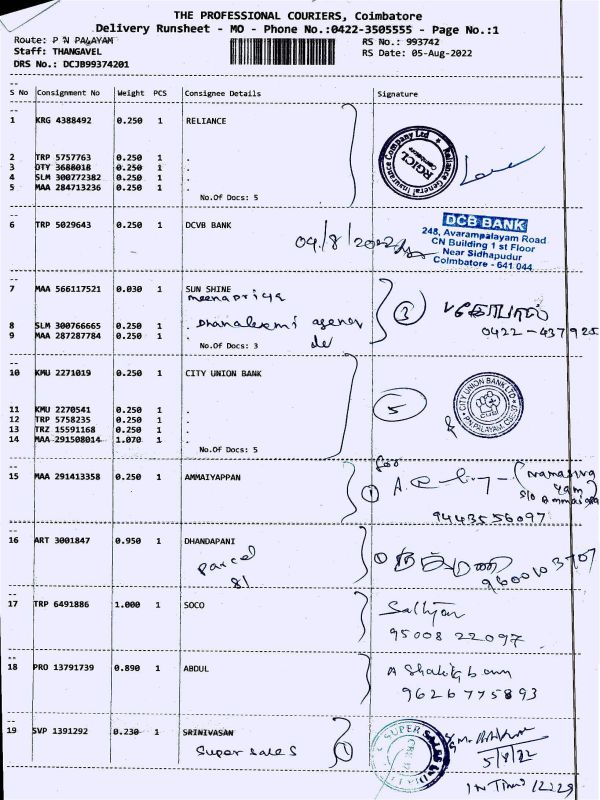 THE PROFESSIONAL COURIERS, Coimbatore
Delivery Runsheet - MO - Phone No.:0422-3505555 - Page No.:1
Route: P N PALAYAM
RS No.: 993742
Staff: THANGAVEL
RS Date: 05-Aug-2022
DRS No.: DCJB99374201
S No Consignment No Weight PCS Consignee Details Signature
1 KRG 4388492 0.250 1 RELIANCE
Reliance General Insurance Company Ltd
RGICL
Coimbatore
2 TRP 5757763 0.250 1 .
3 OTY 3688018 0.250 1 .
4 SLM 300772382 0.250 1 .
5 MAA 284713236 0.250 1 .
No.Of Docs: 5
6 TRP 5029643 0.250 1 DCVB BANK
04/8/2022
DCB BANK
248, Avarampalayam Road
CN Building 1 st Floor
Near Sidhapudur
Coimbatore - 641 044
7 MAA 566117521 0.030 1 SUN SHINE
meenapriya
3
8 SLM 300766665 0.250 1 . Dhanalaxmi agency
0422-437925
9 MAA 287287784 0.250 1 .
No.Of Docs: 3
10 KMU 2271019 0.250 1 CITY UNION BANK
5
CITY UNION BANK LTD
P.N.PALAYAM
11 KMU 2270541 0.250 1 .
12 TRP 5758235 0.250 1 .
13 TRZ 15591168 0.250 1 .
14 MAA 291508014 1.070 1 .
No.Of Docs: 5
for
15 MAA 291413358 0.250 1 AMMAIYAPPAN
1
9443556097
16 ART 3001847 0.950 1 DHANDAPANI
parcel
81
1
9600103707
17 TRP 6491886 1.000 1 SOCO
95008 22097
18 PRO 13791739 0.890 1 ABDUL
9626775893
19 SVP 1391292 0.230 1 SRINIVASAN
Super sales
1
SUPER SALES
5/8/22